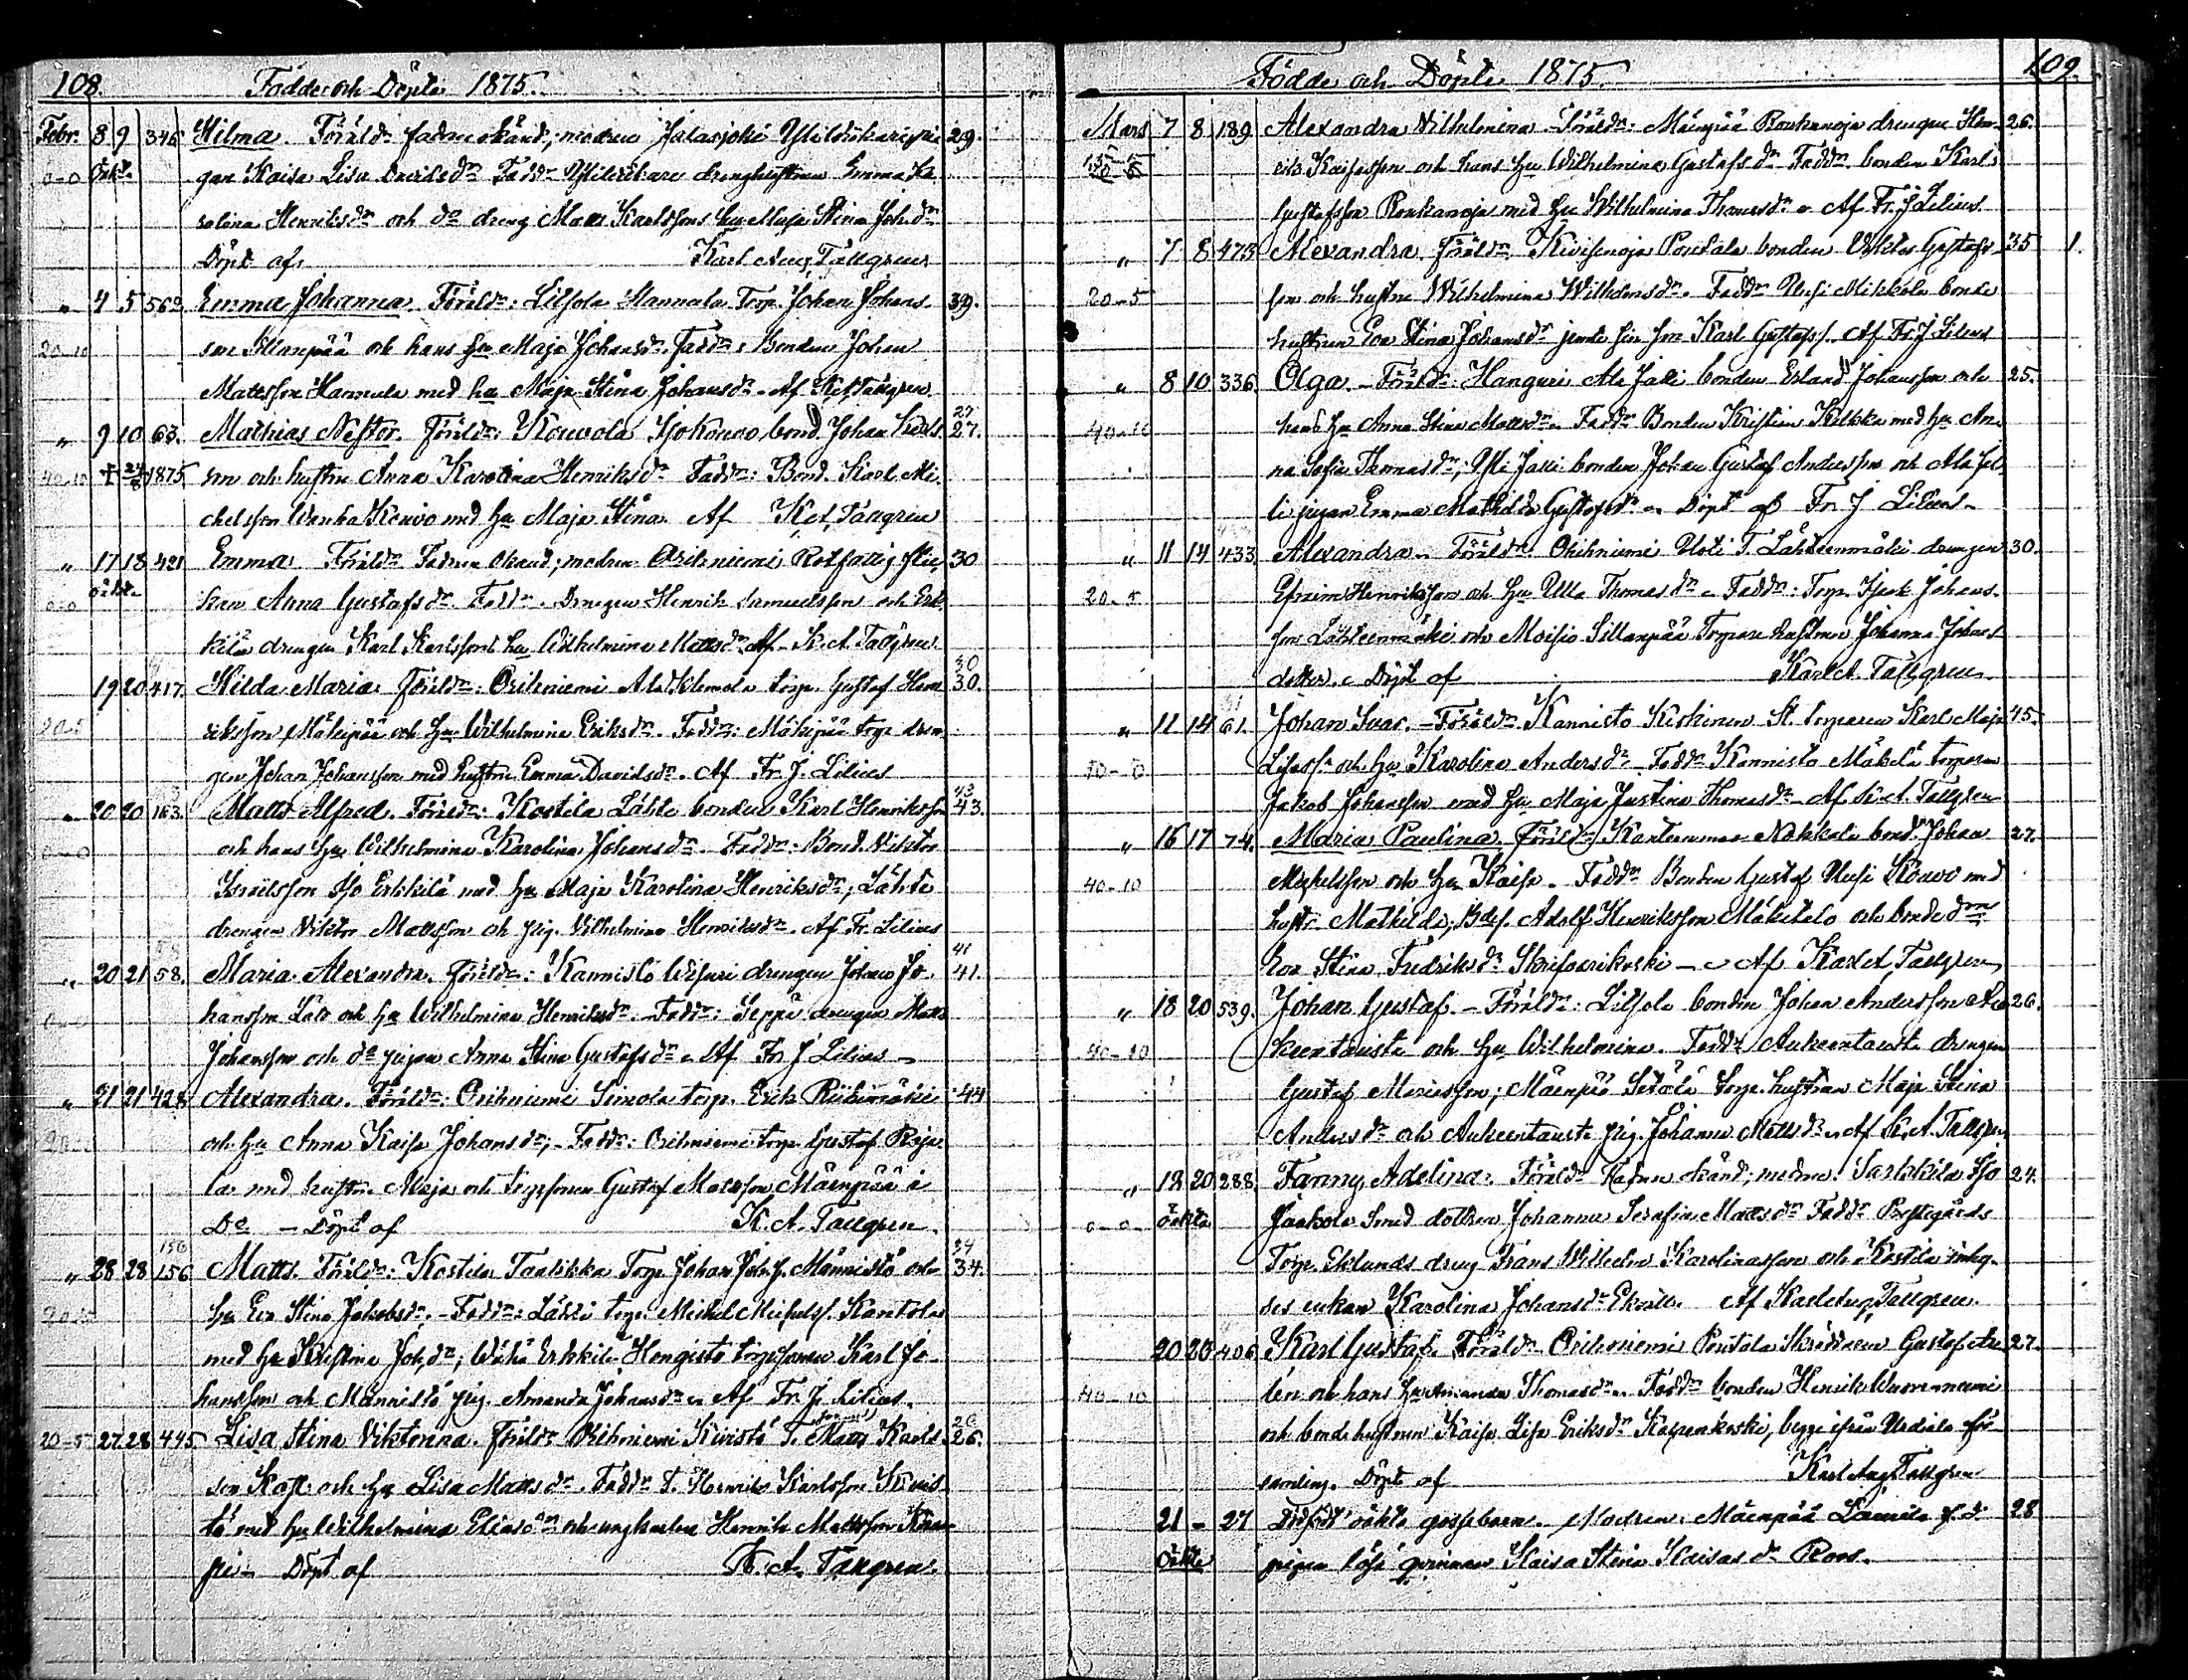 108. Födde och Döpte 1875.
Febr. 8 9 346 Hilma. Föräldr fadren okänd; modren Jalasjoki pi- 29.
0-0 Oäkt. gan Kaisa Lisa Davidsdr Faddr drenghustrun Emma Ka
rolina Henriksdr och do dreng Matts Karlssons hu Maja Stina Joh.dr
Döpt af Karl Aug. Tallgren
" 4 5 563 Emma Johanna. Föräldr: Liesola Hannula Torp. Johan Johans 39.
20-10 son Sillanpää och hans hu Maja Johansdr. Faddr: Bonden Johan
Mattsson Hannula med hu Maja Stina Johansdr. Af Tallgren
" 9 10 63. Mathias Nestor. Föräldr: Kouvola Iso Kouvo bond. Johan Karls 27.
40-10 1875 son och hustru Anna Karolina Henriksdr Faddr: Bond. Karl Mi-
chelsson Wanha Kouvo med hu Maja Stina. Af Tallgren
" 17 18 421 Emma. Föräldr Fadren okänd; modren Orihniemi Rotfattig flic 30
0-0 oäkt. kan Anna Gustafsdr. Faddr. Drengen Henrik Samuelsson och Erk
kilä drengen Karl Karlssons hu Wilhelmina Mattsdr Af K. A. Tallgren
19 20 417. Hilda Maria. Föräldr: Orihniemi Ala Klemola torp. Gustaf Hen 30.
20-5 riksson Mäkipää och hu Wilhelmina Eriksdr. Faddr: Mäkipää torp dren
gen Johan Johansson med hustru Emma Davidsdr. Af Fr. J. Lilius
" 20 20 163. Matts Alfred. Föräldr: Kostila Lähte bonden Karl Henriksson 43.
0-0 och hans hu Wilhelmina Karolina Johansdr. Faddr: Bond. Viktor
Israelsson Iso Erkkilä med hu Maja Karolina Henriksdr; Lähte
drengen Viktor Mattsson och pig. Vilhelmina Henriksdr. Af Fr. Lilius
" 20 21 58. Maria Alexandra. Föräldr: Kannisto drengen Johan Jo- 41.
hansson och hu Wilhelmina Henriksdr. Faddr: Seppä drengen Matts
Johansson och do pigan Anna Stina Gustafsdr. Af Fr J Lilius
" 21 21 428 Alexandra. Föräldr: Orihniemi Simola torp. Erik Riihimäki 44
och hu Anna Kaisa Johansdr; Faddr: Orihniemi torp. Gustaf
la med hustru Maja och torpsonen Gustaf Mattsson Mäenpää i
Do Döpt af K. A. Tallgren.
" 28 28 156 Matts. Föräldr: Kostila Taalikka Torp Johan Joh.s. Männistö och 34.
hu Eva Stina Jakobsdr. Faddr: Lähte torp. Michel Michelss. Kantola
med hu Kristina Joh.dr; Wähä Erkkilä Hongisto torpsonen Karl Jo-
hansson och Männistö pig. Amanda Johansdr. Af Fr. J. Lilius.
20-5 27 28 445 Lisa Stina Viktorina. Föräldr Orihniemi Kivistö T. Matts Karls 26.
son och hu Lisa Mattsdr. Faddr T. Henrik Karlsson Kivis
tö med hu Wilhelmina Eliasdr och ungkarlen Henrik Mattsson
Döpt af K. A. Tallgren.
Födde och Döpte 1875. 109.
Mars 7 8 189 Alexandra Vilhelmina Föräldr: Mäenpää Ronkanoja drengen Hen- 26.
rik Kaisasson och hans hu Wilhelmina Gustafsdr Faddr. bonden Karl
Gustafsson Ronkanoja med hu Wilhelmina Thomasdr. Af Fr. J Lilius
" 7 8 473 Alexandra. Föräldr Kivisenoja Pentala bonden Viktor Gustafs- 35 1.
20-5 son och hustru Wilhelmina Willehadsdr. Faddr Uusi Mikkola bonde
hustrun Eva Stina Johansdr jemte sin son Karl Gustafss. Af Fr. J. Lilius
" 8 10 336 Olga. Föräldr: Hanguri Ala Jalli bonden Erland Johansson och 25.
40-10 hans hu Anna Stina Mattsdr. Faddr Bonden Kristian med hu An-
na Sofia Thomasdr; Yli Jalli bonden Johan Gustaf Andersson och Ala Jal-
li pigan Emma Mathilda Gustafsdr. Döpt af Fr. J Lilius
" 11 14 433 Alexandra. Föräldr: Orihniemi Uoti T. Lähteenmäki drengen 30.
20-5 Efraim Henriksson och hu Ulla Thomasdr. Faddr: Torp. Isak Johans-
son Lähteenmäki och Moisio Sillanpää Torpare hustrun Johanna Johans
dotter. Döpt af Karl A. Tallgren
" 11 14 61. Johan Ivar. Föräldr Kannisto Koskinen St. torparen Karl Maja 45.
10-0 Lisass. och hu Karolina Andersdr. Faddr Kannisto Mäkelä torparen
Jakob Johansson med hu Maja Justina Thomasdr. Af K. A. Tallgren
" 16 17 74. Maria Paulina. Föräldr Kanteenmaa Nokkala bond. Johan 27.
40-10 Michelsson och hu Kaisa. Faddr Bonden Gustaf Uusi Kouvo med
hustr. Mathilda; Bdes. Adolf Henriksson Mäkitalo och bonde dtr
Eva Stina Fredriksdr Af Karl A Tallgren
" 18 20 539. Johan Gustaf. Föräldr: Liesola bonden Johan Andersson Au 26.
40-10 keentausta och hu Wilhelmina. Faddr Aukeentausta drengen
Gustaf Mariasson; Mäenpää Setälä torp. hustrun Maja Stina
Andersdr och Aukeentausta pig. Johanna Mattsdr. Af K. A. Tallgren
" 19 20 288 Fanny Adelina. Föräldr Fadren okänd; modren Sarkkila Iso 24.
0-0 oäkta Jaakola Smed dottren Johanna Serafina Mattsdr Faddr Prestgårds
Torp. Eklunds dreng Frans Wilhelm Karolinasson och Kostila inhy-
ses enkan Karolina Johansdr Af Karl Aug. Tallgren.
20 20 406 Karl Gustaf. Föräldr Orihniemi Pentala Skräddaren Gustaf 27.
40-10 lén och hans hu Amanda Thomasdr. Faddr bonden Henrik Vuorenniemi
och bondehustrun Kaisa Lisa Eriksdr Kolpenkoski, begge ifrån Urdiala för-
samling. Döpt af Karl Aug Tallgren
21 - 27 Dödfödt oäkta gossebarn. Modren: Mäenpää f.d. 28
Oäkta pigan lösa qvinnan Kaisa Stina Kaisasdr Roos.